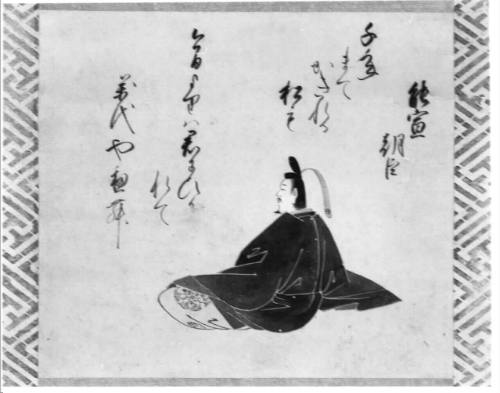 能宣
朝臣
千
まて
かきれる
松も
今日よりハ君にひか
れて
萬代や